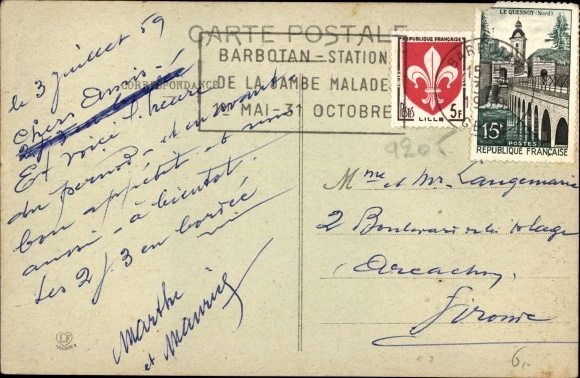 CARTE POSTALE
BARBOTAN-STATION
DE LA JAMBE MALADE
1er MAI-31 OCTOBRE
CORRESPONDANCE
RÉPUBLIQUE FRANÇAISE
POSTES
5F
LILLE
LE QUESNOY (Nord)
15F
POSTES
RÉPUBLIQUE FRANÇAISE
le 3 juillet 59
Chers Amis!
Et voici l'heure
du pernod - et en avant!
bon appétit et nous
aussi - à bientôt.
Les 2 J. 3 en bordée
Marthe
et Maurice
9205
Mme et Mr. Langemarie
2 Boulevard de la plage
Arcachon
Gironde
LF
6.-